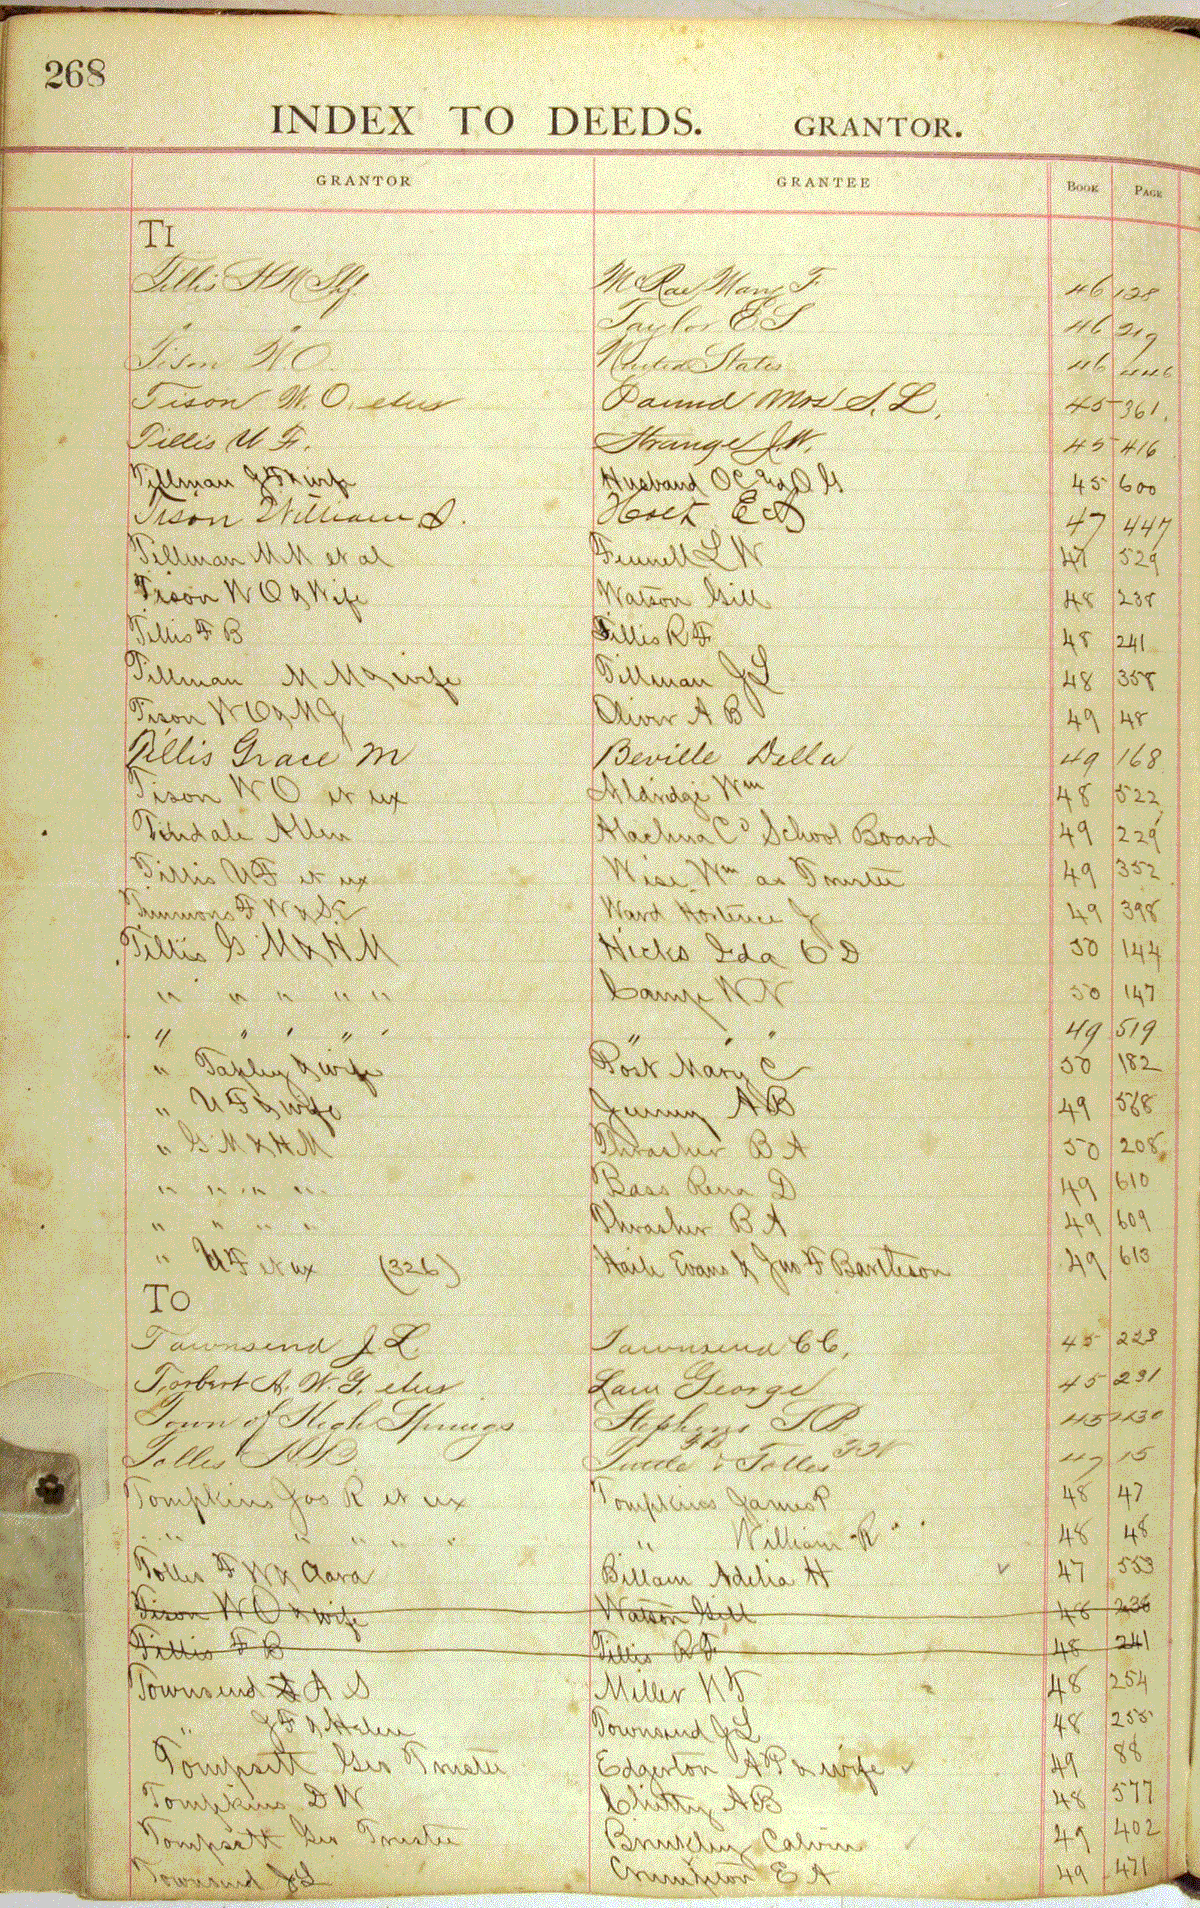 268
INDEX TO DEEDS. GRANTOR.
GRANTOR GRANTEE BOOK PAGE
TI
Tillis H M Shf. McRae Mary F. 46 128
" " Taylor E S 46 219
Tison W. O. United States 46 446
Tison W. O. etux Pound Mrs S. L. 45 361.
Tillis U F. Strange J. W. 45 416
Tillman J F & wife Husband O C 45 600
Tison William S. Holt E A 47 447
Tillman M M et al Fennell L W 47 529
Tison W O & Wife Watson Gill 48 238
Tillis F B Tillis R F 48 241
Tillman M M & wife Tillman J L 48 358
Tison W O & M J Oliver A B 49 48
Tillis Grace M Beville Della 49 168
Tison W O et ux Aldridge Wm 48 522
Tindale Allen Alachua Co School Board 49 229
Tillis U F et ux Wise Wm as Trustee 49 352
Timmons F W & S. Ward Hortence J 49 398
Tillis G M & H M Hicks Ida C D 50 144
" " " " " Camp W N 50 147
" " " " " " " " 49 519
" Tapley & wife Post Mary C 50 182
" U F & wife A B 49 568
" G M & H M Thrasher B A 50 208
" " " " Bass Rena D 49 610
" " " " Thrasher B A 49 609
" U F et ux (326) Haile Evans & Jno F Bartleson 49 613
TO
Townsend J. L. Townsend C C. 45 223
Torbert A. W. G. etux Law George 45 231
Town of High Springs Stephens S. B. 45 430
Tolles H B. & Tolles F W 47 15
Tompkins Jas R et ux Tompkins James P 48 47
" " " " " " William R " " 48 48
Tolles F W & Clara Billam Adelia H 47 553
Tison W O & wife Watson Gill 48 238
Tillis F B Tillis R F 48 241
Townsend A S Miller N F 48 254
" J F & Helen Townsend J L 48 255
Tompsett Geo Trustee Edgerton A P & wife 49 88
Tompkins D W Chitty A B 48 577
Tompsett Geo Trustee Brinkley Calvin 49 402
Townsend J L Crumpton E A 49 471